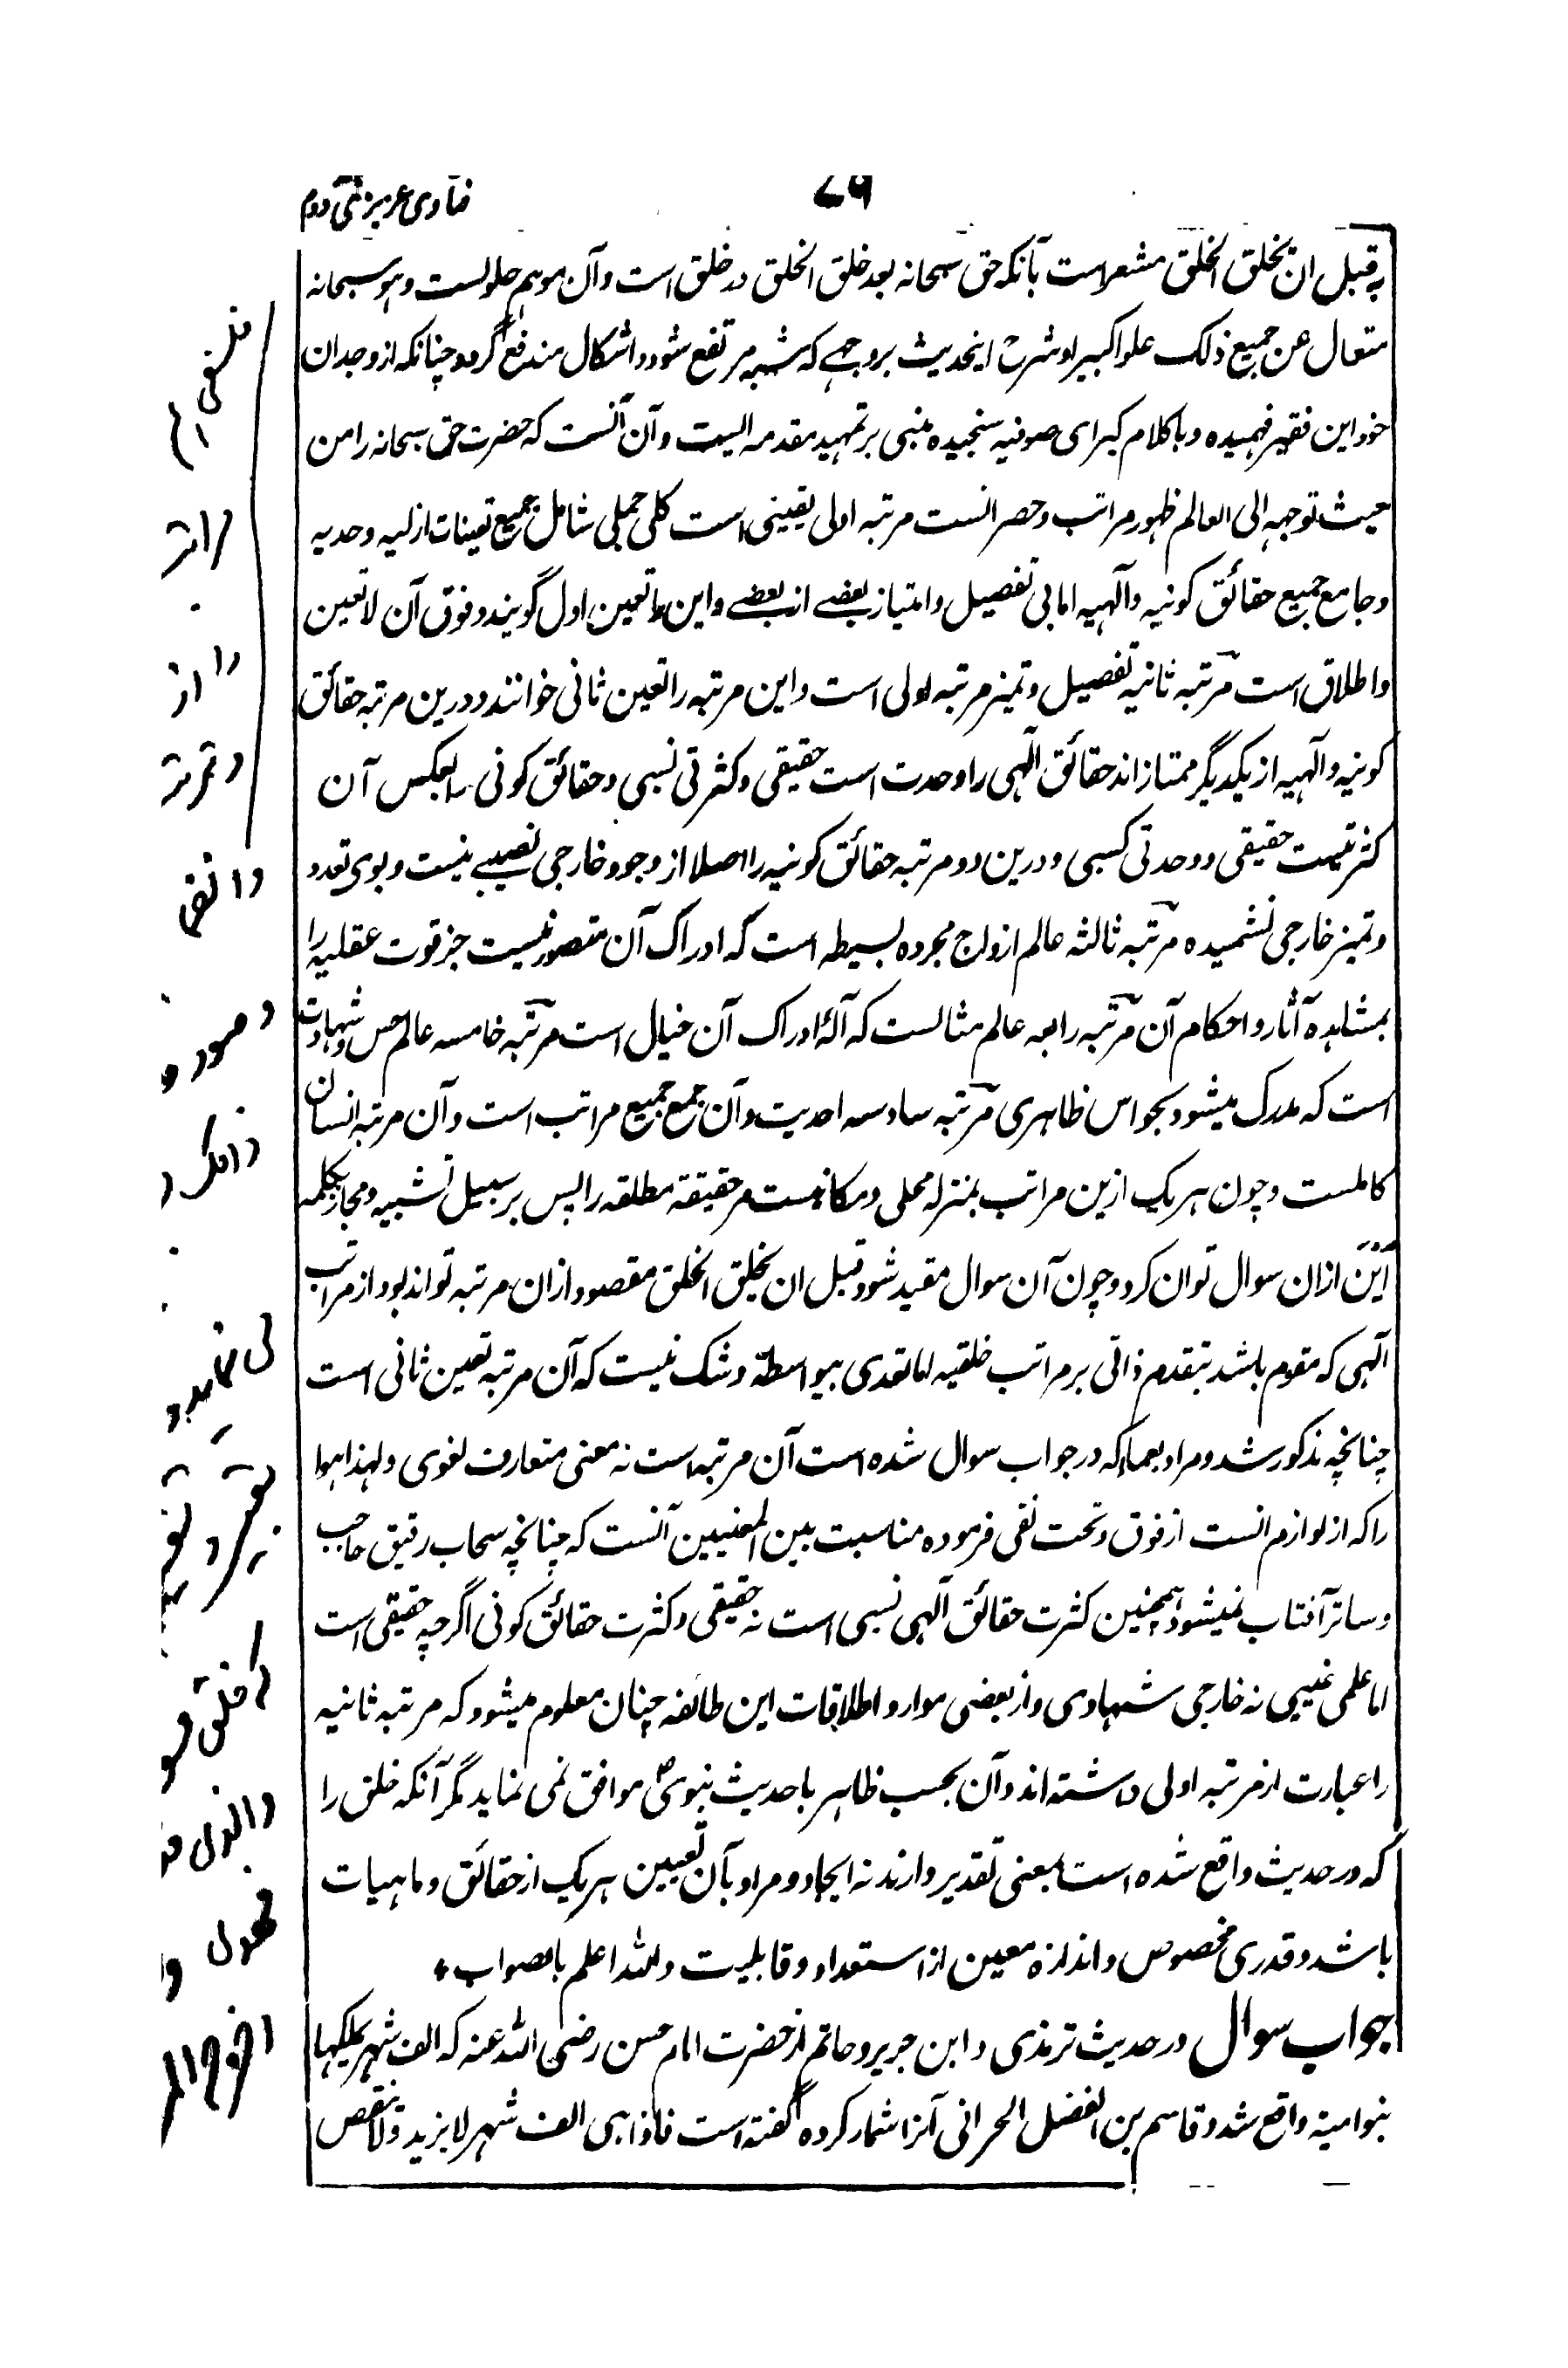 ۷۹
فتاوی عزیزی دوم
به قبل ان یخلق الخلق مشعر است بآنکه حق سبحانه بعد خلق الخلق در خلق است و آن موهم حلولست و هو سبحانه
متعال عن جمیع ذلک علوا کبیرا و شرح اینحدیث بروجهے که شبهه مرتفع شود و اشکال مندفع گردد چنانکه از وجدان
خود این فقیر فهمیده و با کلام کبرای صوفیه سنجیده مبنی بر تمهید مقدمه ایست و آن آنست که حضرت حق سبحانه را من
حیث توجهه الی العالم ظهور مراتب و حصر انست مرتبه اولی یقینی است کلی جملی شامل جمیع تعینات ازلیه و حدیه
و جامع جمیع حقائق کونیه و آلهیه اما بی تفصیل و امتیاز بعضے از بعضے و این را تعین اول گویند و فوق آن لا تعین
و اطلاق است مرتبه ثانیه تفصیل و تمیز مرتبه اولی است و این مرتبه را تعین ثانی خوانند و درین مرتبه حقائق
کونیه و آلهیه از یکدیگر ممتاز اند حقائق آلهی را وحدت است حقیقی و کثرتی نسبی و حقائق کونی را بعکس آن
کثرتیست حقیقی و وحدتی نسبی و درین دو مرتبه حقائق کونیه را اصلا از وجود خارجی نصیبے نیست و بوی تعدد
و تمیز خارجی نشمیده مرتبه ثالثه عالم ارواح مجرده بسیطه است که ادراک آن متصور نیست جز قوت عقلیه را
بمشاهده آثار و احکام آن مرتبه رابعه عالم مثالست که آلهٔ ادراک آن خیال است مرتبه خامسه عالم حس و شهادت
است که مدرک میشود بحواس ظاهری مرتبه سادسه احدیت و آن جمع جمیع مراتب است و آن مرتبه انسان
کاملست و چون هر یک ازین مراتب بمنزله محلی و مکانیست مر حقیقة مطلقه را پس بر سبیل تشبیه و مجاز بکلمه
این ازان سوال توان کرد و چون آن سوال مقید شود قبل ان یخلق الخلق مقصود ازان مرتبه تواند بود از مراتب
آلهی که مقوم باشد بتقدم ذاتی بر مراتب خلقیه اما تقدمی بیواسطه و شک نیست که آن مرتبه تعین ثانی است
چنانچه مذکور شد و مراد بعما که در جواب سوال شده است آن مرتبه است نه معنی متعارف لغوی و لهذا هوا
را که از لوازم انست از فوق و تحت نفی فرموده مناسبت بین المعنیین آنست که چنانچه سحاب رقیق حاجب
و ساتر آفتاب نمیشود همچنین کثرت حقائق آلهی نسبی است نه حقیقی و کثرت حقائق کونی اگرچه حقیقی است
اما علمی غیبی نه خارجی شهادی و از بعضی موارد اطلاقات این طائفه چنان معلوم میشود که مرتبه ثانیه
را عبارت از مرتبه اولی داشته اند و آن بحسب ظاهر با حدیث نبوی ص موافق نمی نماید مگر آنکه خلق را
که در حدیث واقع شده است بمعنی تقدیر دارند نه ایجاد و مراد بآن تعیین هر یک از حقائق و ماهیات
باشد و قدری مخصوص و اندازه معین از استعداد و قابلیت والله اعلم بالصواب
جواب سوال در حدیث ترمذی و ابن جریر و حاتم از حضرت امام حسن رضی الله عنه که الف شهر یملکها
بنو امیة واقع شد و قاسم بن الفضل الحرانی آنرا شمار کرده گفته است فاذا هی الف شهر لا یزید ولا ینقص